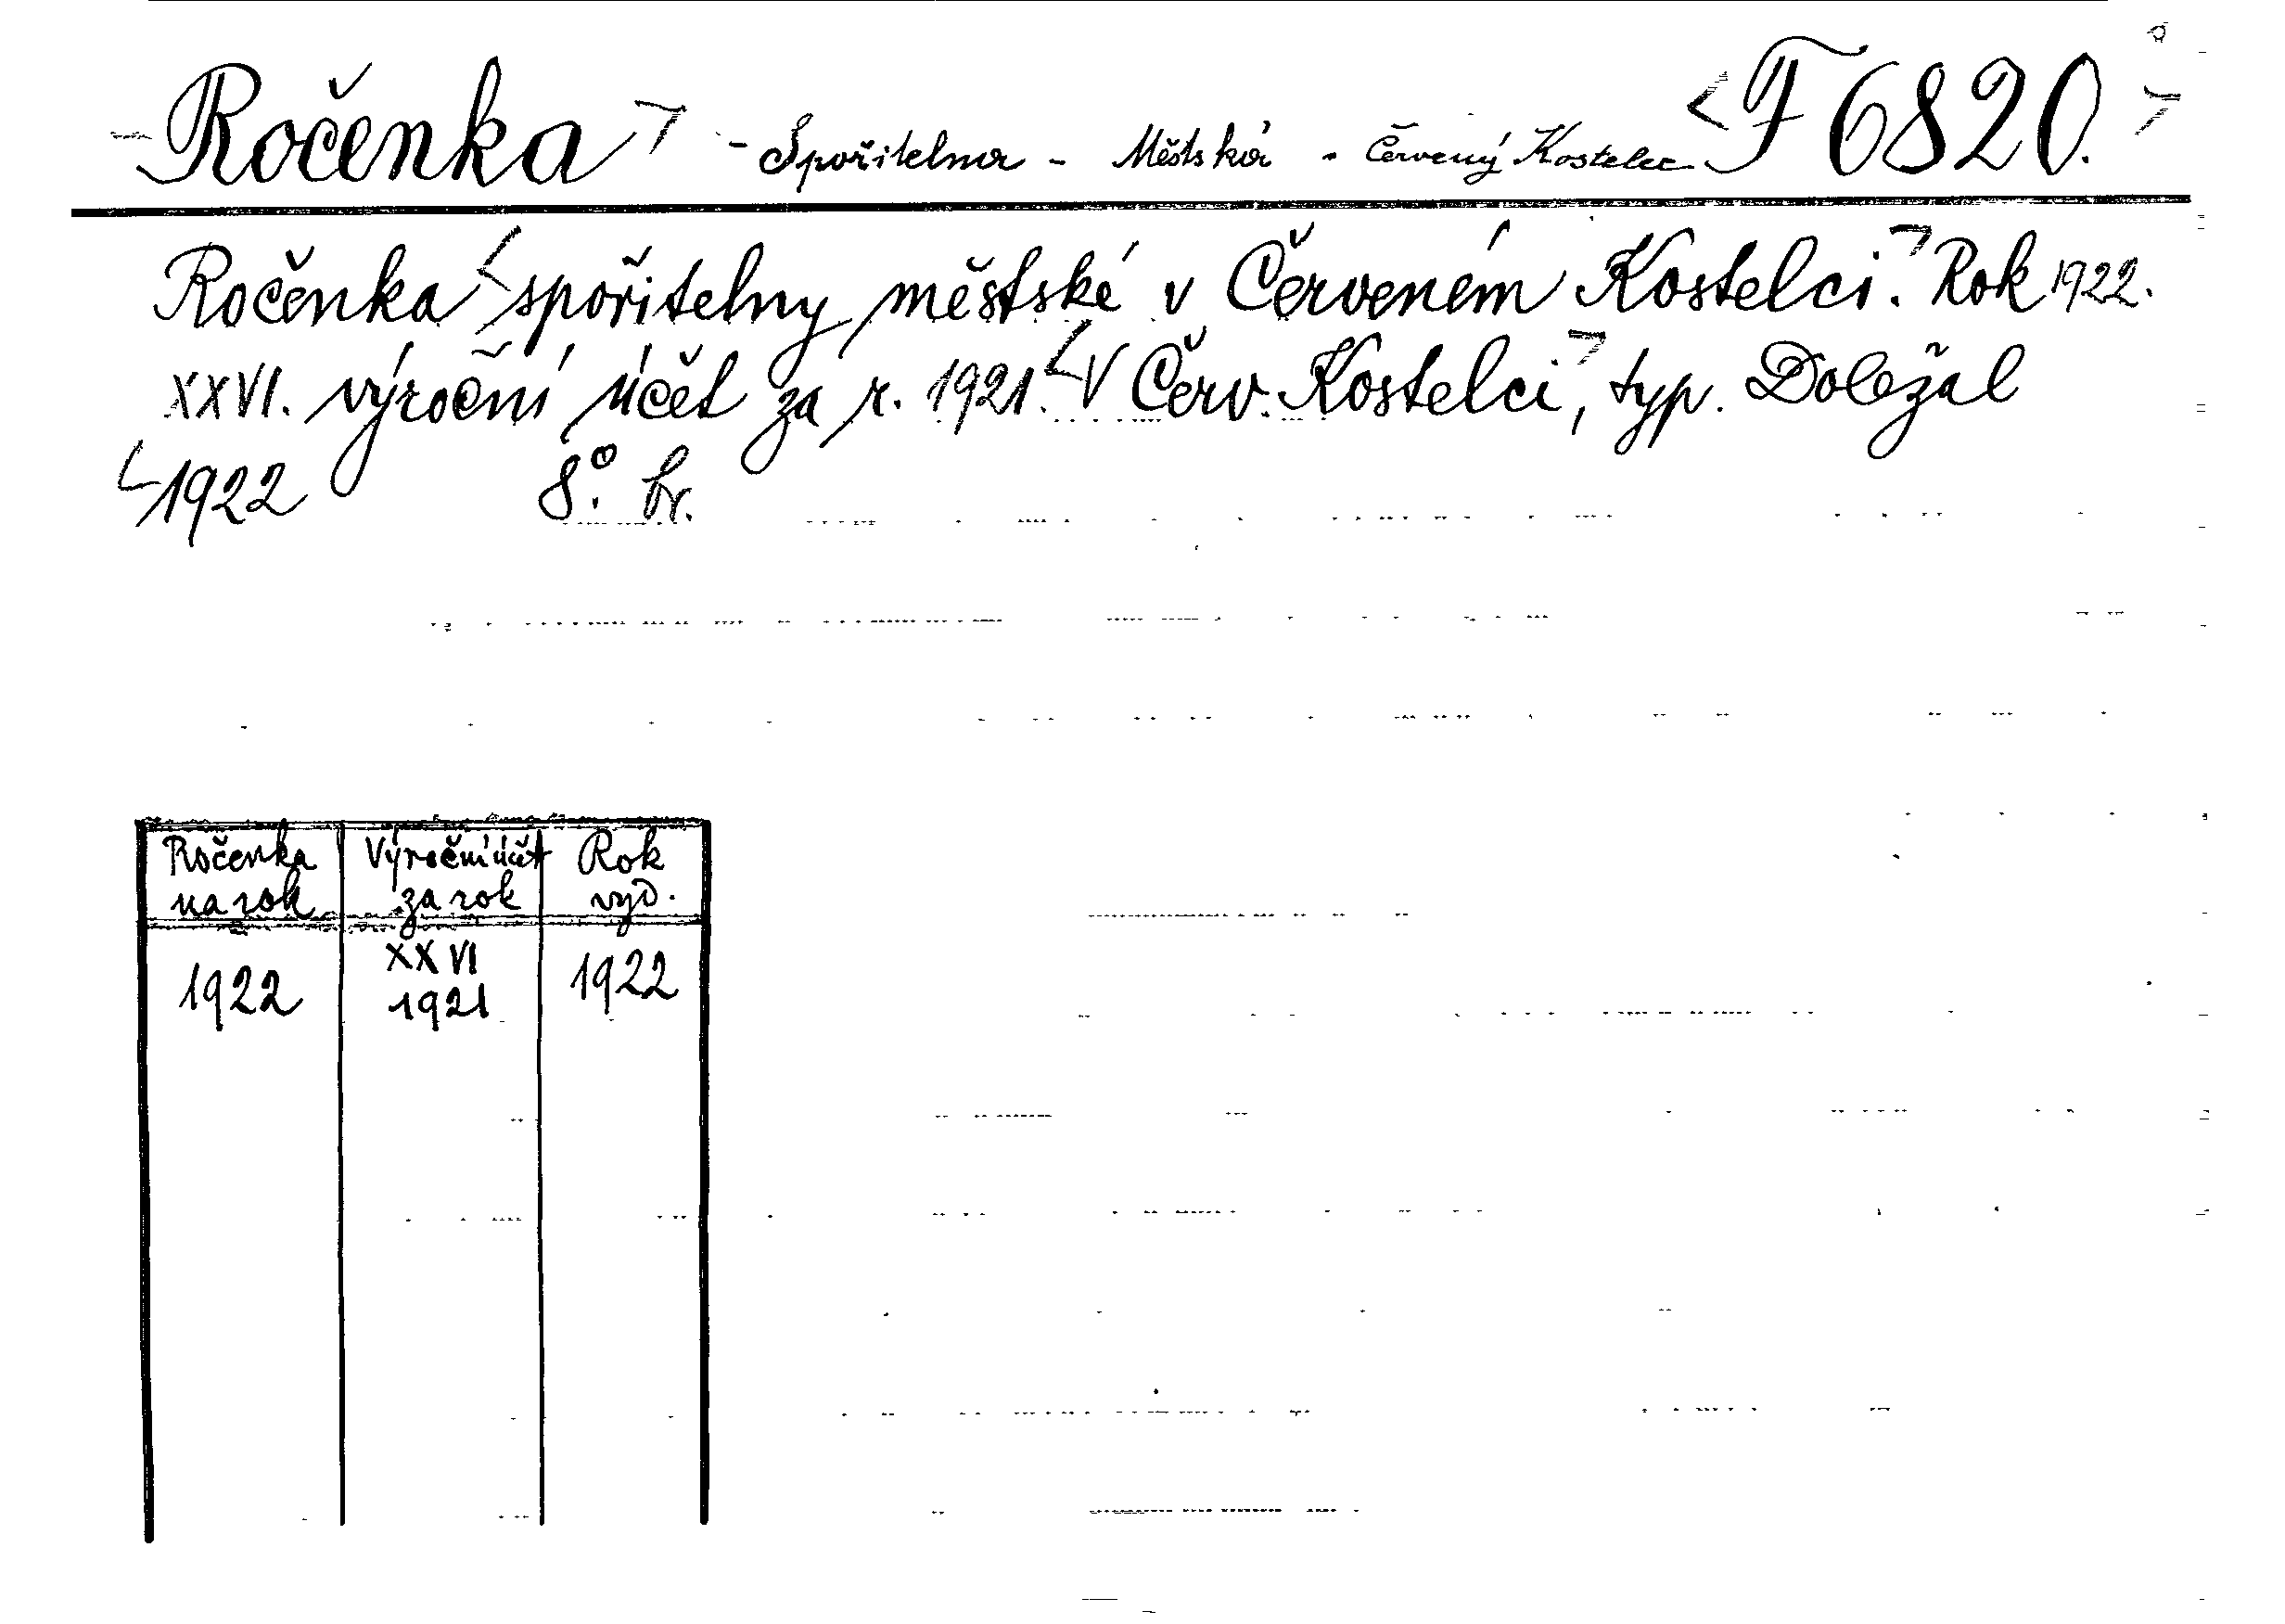 Ročenka - Spořitelna - Městská - Červený Kostelec F 6820.
Ročenka spořitelny městské v Červeném Kostelci. Rok 1922.
XXVI. výroční účet za r. 1921. V Červ. Kostelci, typ. Doležal
1922 8°. br.
Ročenka na rok
Výroční účt za rok
Rok vyd.
1922
XXVI 1921
1922